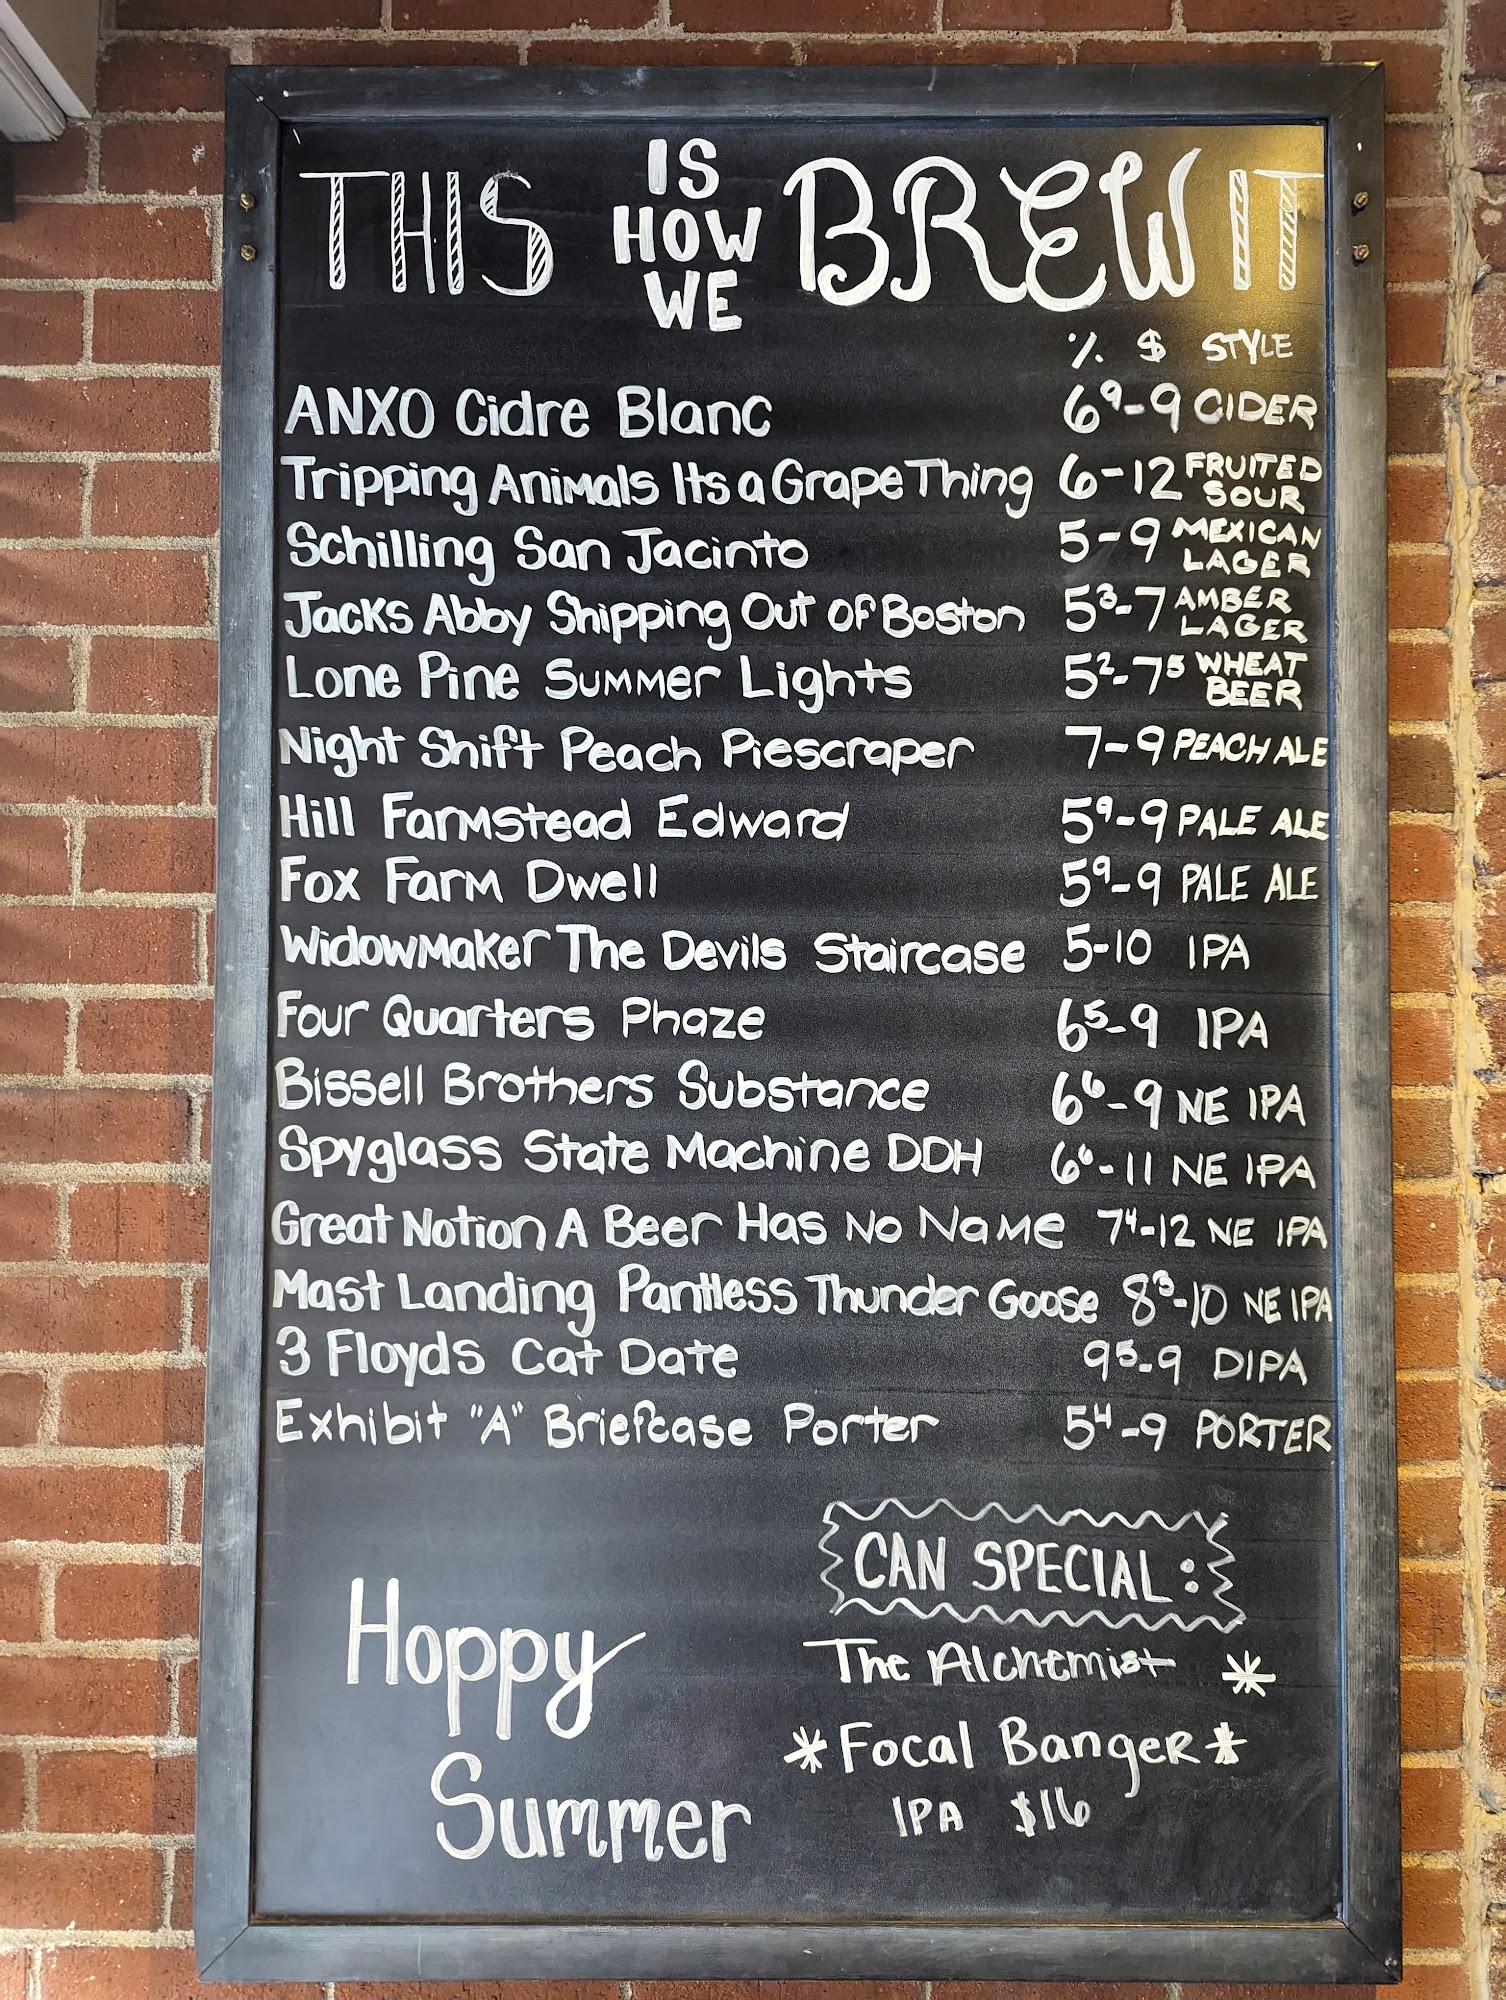 THIS IS HOW WE BREW IT
% $ STYLE
ANXO Cidre Blanc 6⁹-9 CIDER
Tripping Animals Its a Grape Thing 6-12 FRUITED SOUR
Schilling San Jacinto 5-9 MEXICAN LAGER
Jacks Abby Shipping Out of Boston 5³-7 AMBER LAGER
Lone Pine Summer Lights 5²-7⁵ WHEAT BEER
Night Shift Peach Piescraper 7-9 PEACH ALE
Hill Farmstead Edward 5⁹-9 PALE ALE
Fox Farm Dwell 5⁹-9 PALE ALE
Widowmaker The Devils Staircase 5-10 IPA
Four Quarters Phaze 6⁵-9 IPA
Bissell Brothers Substance 6⁶-9 NE IPA
Spyglass State Machine DDH 6⁶-11 NE IPA
Great Notion A Beer Has No Name 7⁴-12 NE IPA
Mast Landing Pantless Thunder Goose 8³-10 NE IPA
3 Floyds Cat Date 9⁵-9 DIPA
Exhibit "A" Briefcase Porter 5⁴-9 PORTER
Hoppy
Summer
CAN SPECIAL:
The Alchemist *
*Focal Banger*
IPA $16